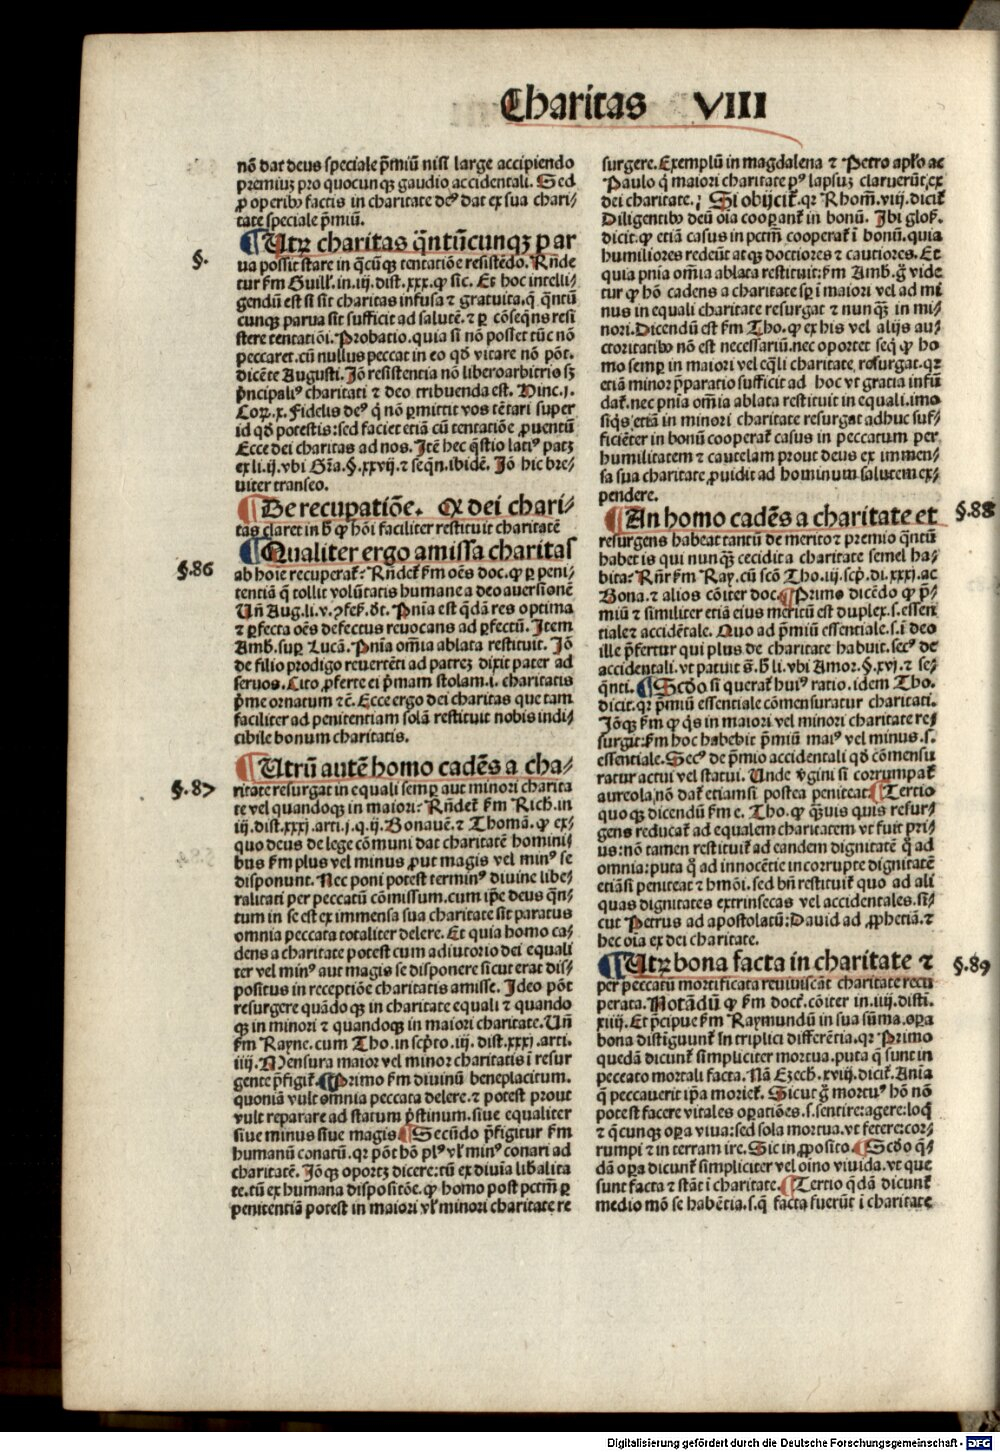 Charitas VIII
nō dat deus speciale p̄miū nisi large accipiendo
premiuꝫ pro quocunqꝫ gaudio accidentali. Sed
ꝓ operibꝰ factis in charitate deꝰ dat ex sua chari⸗
tate speciale p̄miū.
§.
¶ Utrꝫ charitas q̄ntūcunqꝫ par
ua possit stare in q̄cūqꝫ tentatiōe resistēdo. Rn̄de
tur ẜm Guill'. in .iij. dist. xxx. ꝙ sic. Et hoc intelli⸗
gendū est si sit charitas infusa ⁊ gratuita. q̄ q̄ntū
cunqꝫ parua sit sufficit ad salutē. ⁊ ꝑ cōseq̄ns resi
stere tentatiōi. Probatio. quia si nō posset tūc nō
peccaret. cū nullus peccat in eo qd̄ vitare nō pōt.
dicēte Augusti. Jō resistentia nō liberoarbitrio sꝫ
p̄ncipaliꝰ charitati ⁊ deo tribuenda est. Hinc .j.
Coꝝ. x. Fidelis deꝰ q̄ nō ꝑmittit vos tētari super
id qd̄ potestis: sed faciet etiā cū tentatiōe ꝓuentū
Ecce dei charitas ad nos. Jtē hec q̄stio latiꝰ patꝫ
ex li. ij. vbi Gr̄a. §. xxvij. ⁊ seq̄n. ibidē. Jō hic bre⸗
uiter transeo.
¶ De recupatiōe. Ex dei chari⸗
tas claret in h̄ ꝙ hōi faciliter restituit charitatē
§.86
¶ Qualiter ergo amissa charitas
ab hoīe recuperat᷑: Rn̄det᷑ ẜm oēs doc. ꝙ ꝑ peni⸗
tentiā q̄ tollit volūtatis humane a deo auersionē
Un̄ Aug. li. v. ꝯfeſſ. dt̄. Pn̄ia est q̄dā res optima
⁊ ꝑfecta oēs defectus reuocans ad ꝑfectū. Jtem
Amb. suꝑ Lucā. Pn̄ia om̄ia ablata restituit. Jō
de filio prodigo reuertēti ad patreꝫ dixit pater ad
seruos. Cito ꝓferte ei p̄mam stolam. i. charitatis
p̄me ornatum ⁊c̄. Ecce ergo dei charitas que tam
faciliter ad penitentiam solā restituit nobis indi⸗
cibile bonum charitatis.
§.87
¶ Utrū autē homo cadēs a cha⸗
ritate resurgat in equali semꝑ aut minori charita
te vel quandoqꝫ in maiori: Rn̄det᷑ ẜm Rich. in
iij. dist. xxxj. arti. j. q. ij. Bonauē. ⁊ Thomā. ꝙ ex⸗
quo deus de lege cōmuni dat charitatē homini⸗
bus ẜm plus vel minus ꝓut magis vel minꝰ se
disponunt. Nec poni potest terminꝰ diuine libe⸗
ralitati per peccatū cōmissum. cum ip̄e deus q̄n⸗
tum in se est ex immensa sua charitate sit paratus
omnia peccata totaliter delere. Et quia homo ca⸗
dens a charitate potest cum adiutorio dei equali
ter vel minꝰ aut magis se disponere sicut erat dis⸗
positus in receptiōe charitatis amisse. Jdeo pōt
resurgere quādoqꝫ in charitate equali ⁊ quando
qꝫ in minori ⁊ quandoqꝫ in maiori charitate. Un̄
ẜm Rayne. cum Tho. in scp̄to. iij. dist. xxxj. arti.
iiij. Mensura maior vel minor charitatis ī resur
gente p̄figit᷑. ¶ Primo ẜm diuinū beneplacitum.
quoniā vult omnia peccata delere. ⁊ potest prout
vult reparare ad statum p̄stinum. siue equaliter
siue minus siue magis ¶ Secūdo p̄figitur ẜm
humanū conatū. qꝛ pōt hō plꝰ vl̓ minꝰ conari ad
charitatē. Jōqꝫ oportꝫ dicere: tū ex diuīa libalita
te. tū ex humana dispositōe. ꝙ homo post pctm̄ ꝑ
penitentiā potest in maiori vl̓ minori charitate re
surgere. Exemplū in magdalena ⁊ Petro apl̓o ac
Paulo q̄ maiori charitate pꝰ lapsuꝫ claruerūt ex
dei charitate. ¶ Si obijcit᷑. qꝛ Rhom̄. viij. dicit᷑
Diligentibꝰ deū oīa cooꝑant᷑ in bonū. Jbi glos̄.
dicit. ꝙ etiā casus in pctm̄ cooperat᷑ ī bonū. quia
humiliores redeūt atqꝫ doctiores ⁊ cautiores. Et
quia pnīa om̄ia ablata restituit: ẜm Amb. g̊ vide
tur ꝙ hō cadens a charitate sꝑ ī maiori vel ad mi
nus in equali charitate resurgat ⁊ nunqꝫ̄ in mi⸗
nori. Dicendū est ẜm Tho. ꝙ ex his vel alijs au⸗
ctoritatibꝰ nō est necessariū. nec oportet seq̄ ꝙ ho
mo semꝑ in maiori vel eq̄li charitate resurgat. qꝛ
etiā minor p̄paratio sufficit ad hoc vt gratia infū
dat᷑. nec pnīa om̄ia ablata restituit in equali. imo
siq̄s etiā in minori charitate resurgat adhuc suf⸗
ficiēter in bonū cooperat᷑ casus in peccatum per
humilitatem ⁊ cautelam prout deus ex immen⸗
sa sua charitate ꝓuidit ad hominum salutem ex⸗
pendere.
§.88
¶ An homo cadēs a charitate et
resurgens habeat tantū de merito ⁊ premio q̄ntū
habet is qui nunqꝫ̄ cecidit a charitate semel ha⸗
bita: Rn̄r ẜm Ray. cū scō Tho. iij. scp̄. di. xxxj. ac
Bona. ⁊ alios cōiter doc. ¶ Primo dicēdo ꝙ p̄⸗
miū ⁊ similiter etiā eius meritū est duplex. s. essen
tiale ⁊ accidētale. Quo ad p̄miū essentiale. s. ī deo
ille p̄fertur qui plus de charitate habuit. secꝰ de
accidentali. vt patuit s̄. h̄ li. vbi Amor. §. xvj. ⁊ se⸗
q̄nti. ¶ Scd̓o si querat᷑ huiꝰ ratio. idem Tho.
dicit. qꝛ p̄miū essentiale cōmensuratur charitati.
Jōqꝫ ẜm ꝙ q̄s in maiori vel minori charitate re⸗
surgit: ẜm hoc habebit p̄miū maiꝰ vel minus. s.
essentiale. Secꝰ de p̄mio accidentali qd̄ cōmensu
ratur actui vel statui. Unde v̓gini si corrumpat᷑
aureola, nō dat᷑ etiamsi postea peniteat. ¶ Tertio
quoqꝫ dicendū ẜm e. Tho. ꝙ qꝫ̄uis quis resur⸗
gens reducat᷑ ad equalem charitatem vt fuit pri⸗
us: nō tamen restituit᷑ ad eandem dignitatē q̄ ad
omnia: puta q̄ ad innocētie incorrupte dignitatē
etiāsi peniteat ⁊ hmōi. sed bn̄ restituit᷑ quo ad ali
quas dignitates extrinsecas vel accidentales. si⸗
cut Petrus ad apostolatū: Dauid ad ꝓphetiā. ⁊
hec oīa ex dei charitate.
§.89
¶ Utrꝫ bona facta in charitate ⁊
per peccatū mortificata reuiuiscāt charitate recu
perata. Notādū ꝙ ẜm doct. cōiter in .iiij. disti.
xiiij. Et p̄cipue ẜm Raymundū in sua sūma. oꝑa
bona distīguunt᷑ īn triplici differētia. qꝛ Primo
quedā dicunt᷑ simpliciter mortua. puta q̄ sunt in
peccato mortali facta. Nā Ezech. xviij. dicit᷑. Anīa
q̄ peccauerit ip̄a moriet᷑. Sicut g̊ mortuꝰ hō nō
potest facere vitales oꝑatiōes. s. sentire: agere: loq̄
⁊ q̄cunqꝫ oꝑa viua: sed sola mortua. vt fetere: cor⸗
rumpi ⁊ in terram ire. Sic in ꝓposito. ¶ Scd̓o q̄⸗
dā oꝑa dicunt᷑ simpliciter vel oīno viuida. vt que
sunt facta ⁊ stāt ī charitate. ¶ Tertio q̄dā dicunt᷑
medio mō se habētia. s. q̄ facta fuerūt ī charitate
Digitalisierung gefördert durch die Deutsche Forschungsgemeinschaft - DFG